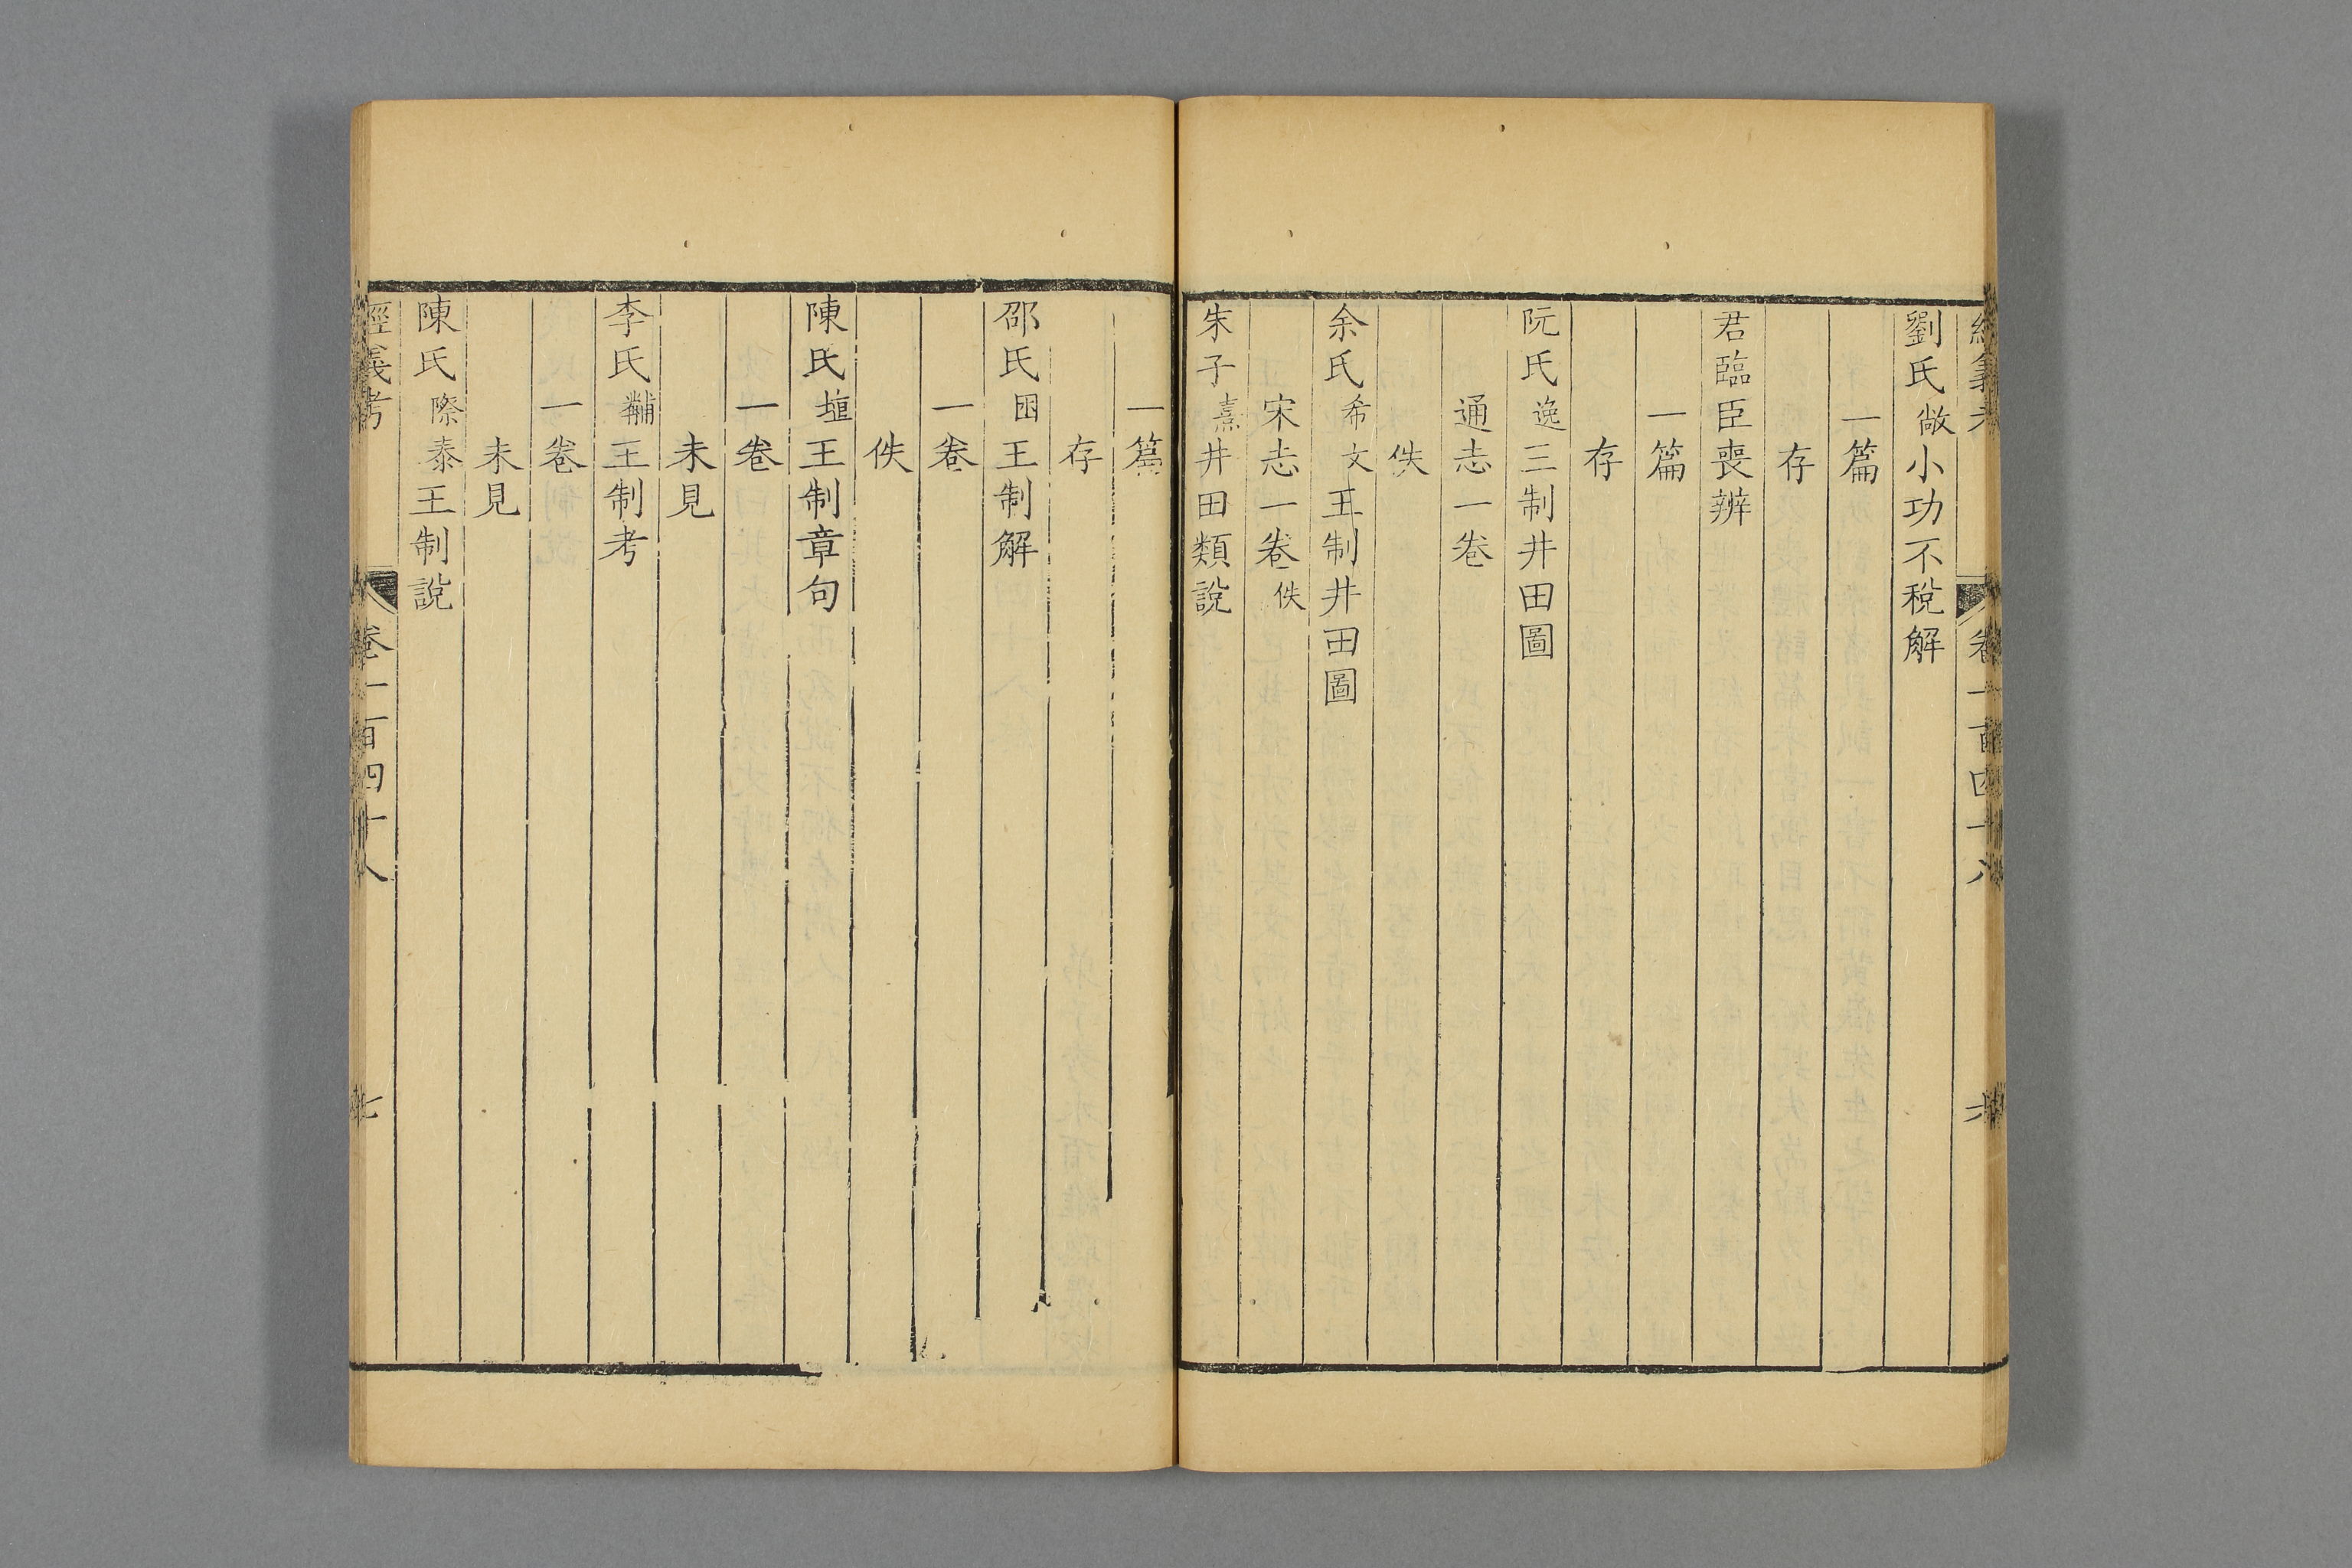 經義考 卷一百四十八 六
劉氏敞小功不稅解
一篇
存
君臨臣喪辨
一篇
存
阮氏逸三制井田圖
通志一卷
佚
余氏希文王制井田圖
宋志一卷佚
朱子熹井田類說
一篇
存
邵氏囦王制解
一卷
佚
陳氏埴王制章句
一卷
未見
李氏黼王制考
一卷
未見
陳氏際泰王制說
經義考 卷一百四十八 七